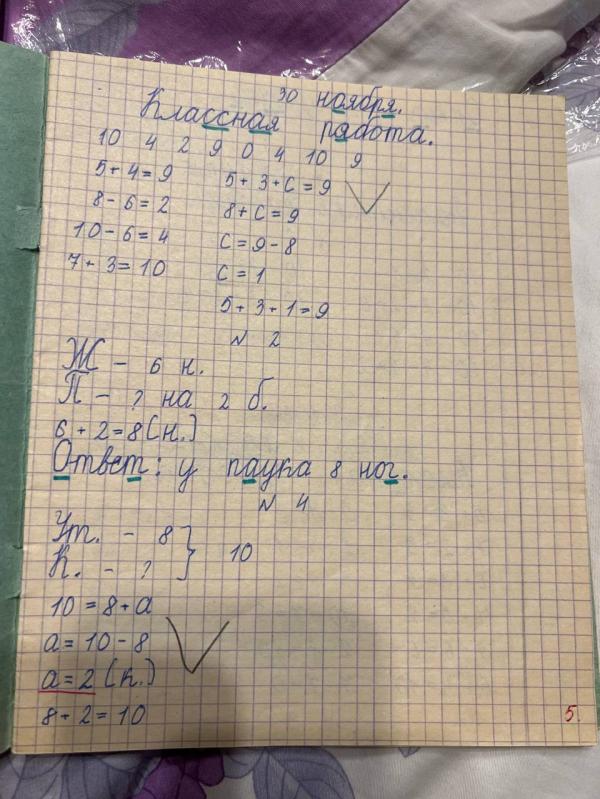 30 ноября.
Классная работа.
10 4 2 9 0 4 10 9
5+4=9
8-6=2
10-6=4
7+3=10
5+3+с=9
8+с=9
с=9-8
с=1
5+3+1=9
N 2
Ж - 6 н.
П - ? на 2 б.
6+2=8(н.)
Ответ: у паука 8 ног.
N 4
Ут. - 8
К. - ?
} 10
10=8+а
а=10-8
а=2 (к.)
8+2=10
5.